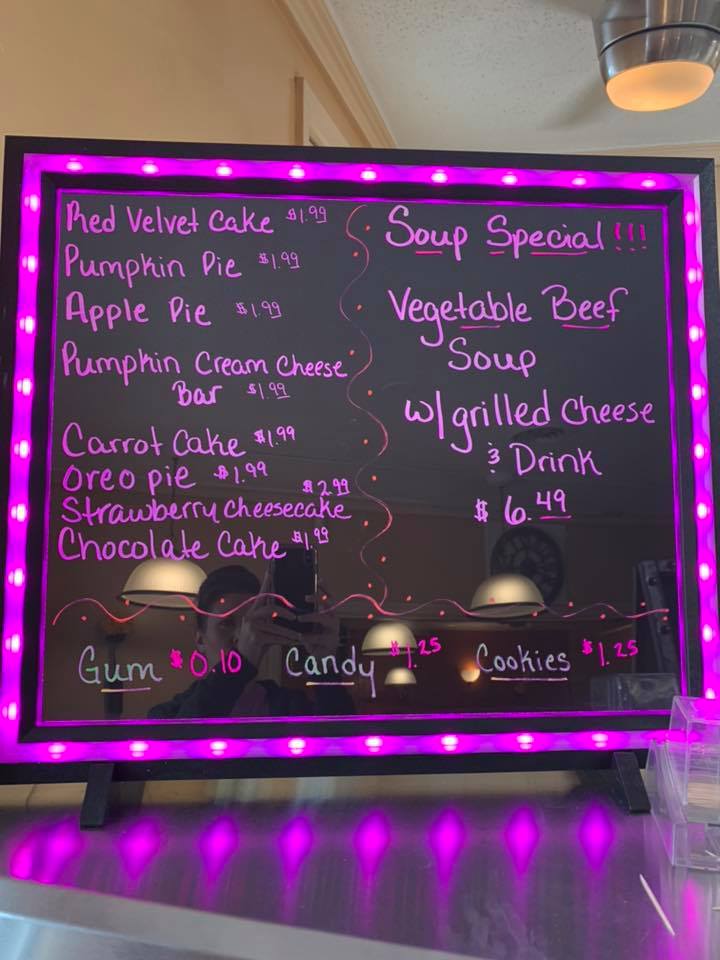 Red Velvet Cake $1.99
Pumpkin Pie $1.99
Apple Pie $1.99
Pumpkin Cream Cheese
Bar $1.99
Carrot Cake $1.99
Oreo pie $1.99
$2.99
Strawberry cheesecake
Chocolate Cake $1.99
Soup Special!!!
Vegetable Beef
Soup
w/ grilled cheese
& Drink
$6.49
Gum $0.10 Candy $1.25 Cookies $1.25